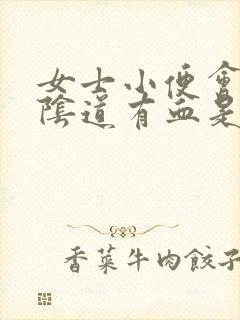 女士小便會
陰道有血是
香菜牛肉餃子